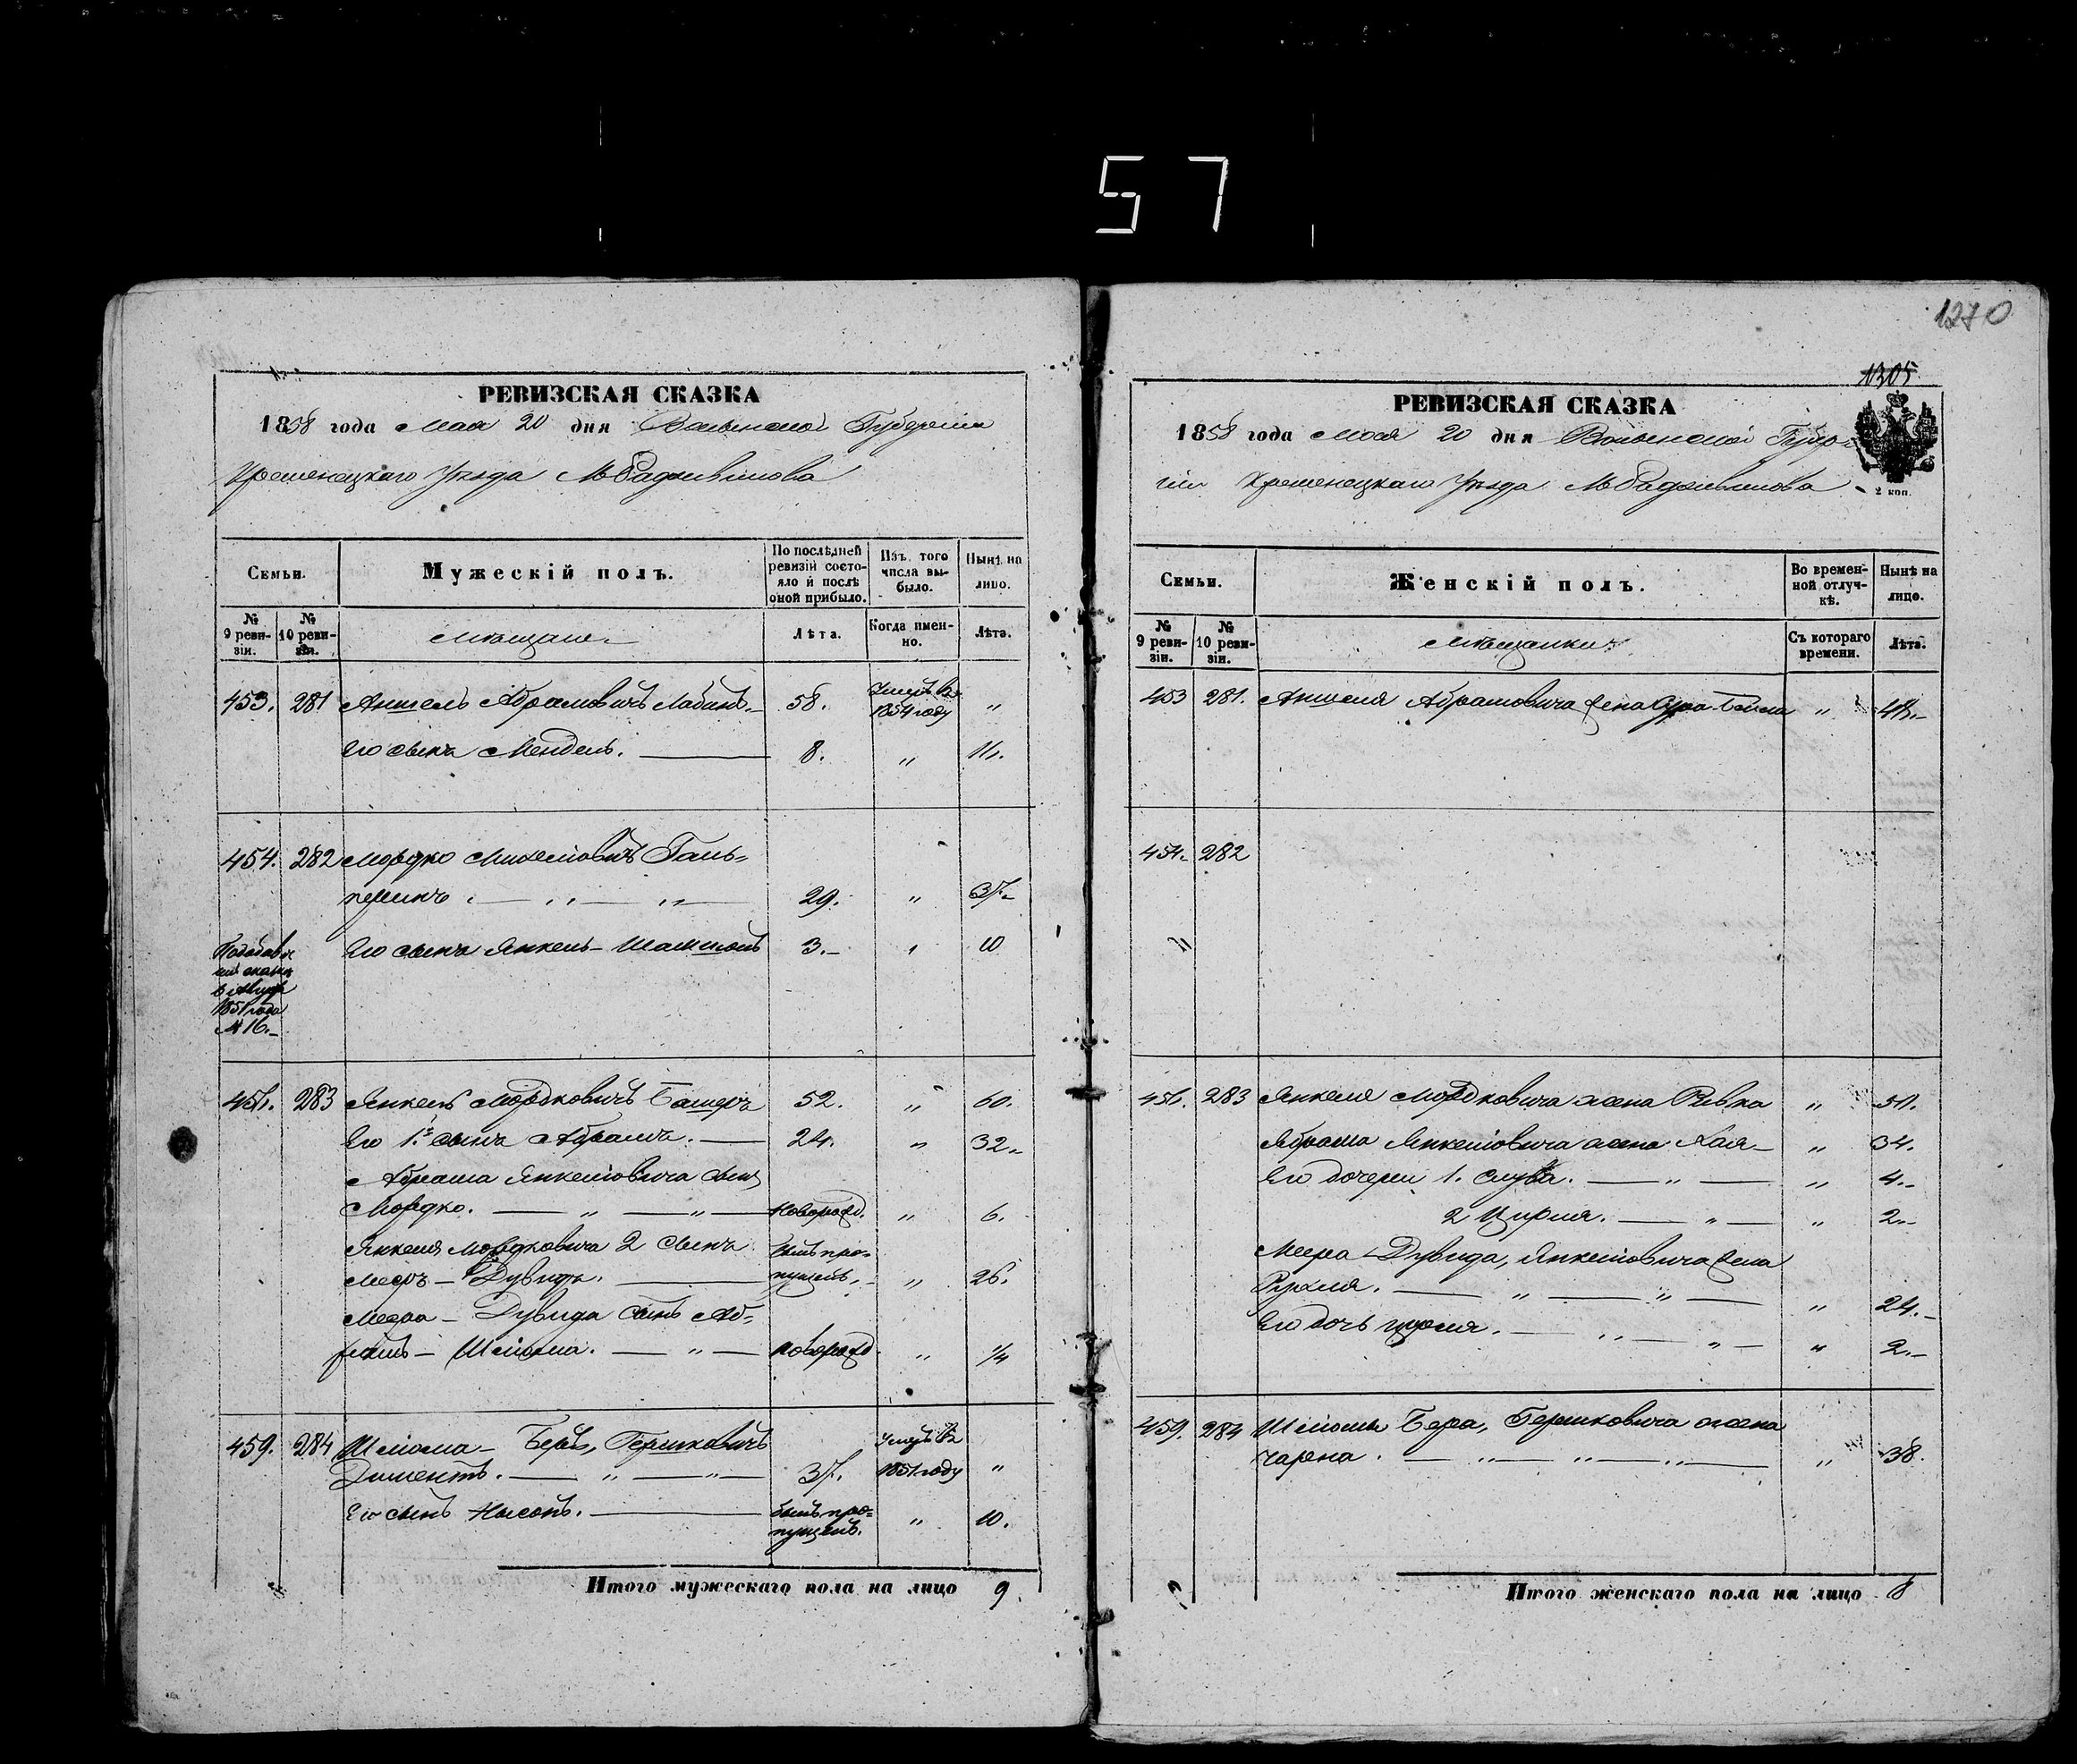 57
1270
РЕВИЗСКАЯ СКАЗКА
1858 года Мая 20 дня Волынской Губернии
Кременецкаго Уѣзда М Радзивилова
Семьи.
Мужескій полъ.
По послѣдней ревизіи состояло и послѣ оной прибыло.
Изъ того числа выбыло.
Нынѣ на лицо.
№ 9 ревизіи.
№ 10 ревизіи.
Мѣщане
Лѣта.
Когда именно.
Лѣта.
453. 281 Аншель Абрамовичъ 58. Умеръ въ 1854 году "
Его сынъ Мендель. 8. "
454. 282 Мордко Галь=
перинъ 29. " 37.
Его сынъ Янкель- 3. " 10
1851 года
№ 16.
283 Янкель Мордковичъ 52. " 60.
Его 1й сынъ Абрамъ. 24. " 32.
Абрама Янкелювича сынъ
Мордко. новорожд. " 6.
Янкеля Мордковича 2 сынъ былъ про=
Мееръ-Дувидъ. пущенъ. " 26.
Меера-Дувида сынъ Аб=
рамъ-Шлiома. новорожд " 1/4
459. 284 Шлiома-Беръ, Гершковичъ Умеръ въ
Диментъ. 37. 1851 году "
Его сынъ Нысонъ. былъ про=пущенъ. " 10.
Итого мужескаго пола на лицо 9.
1305
РЕВИЗСКАЯ СКАЗКА
1858 года Мая 20 дня Волынской Губер=
ніи Кременецкаго Уѣзда М Радзивилова
2 коп.
Семьи.
Женскій полъ.
Во временной отлучкѣ.
Нынѣ на лицо.
№ 9 ревизіи.
№ 10 ревизіи.
Мѣщанки
Съ котораго времени.
Лѣта.
453 281. Аншеля Абрамовича жена Сура-Бейла "
454. 282
"
283 Янкеля Мордковича жена Ривка "
Абрама Янкелювича жена Хая " 34.
Его дочери 1. " 4.
2 Цирля. " 2.
Меера-Дувида, Янкелювича жена
Рухля. " 24.
Его дочь " 2.
459. 284 Шлiомы Бера, Гершковича жена
Чарна. " 38.
Итого женскаго пола на лицо 8